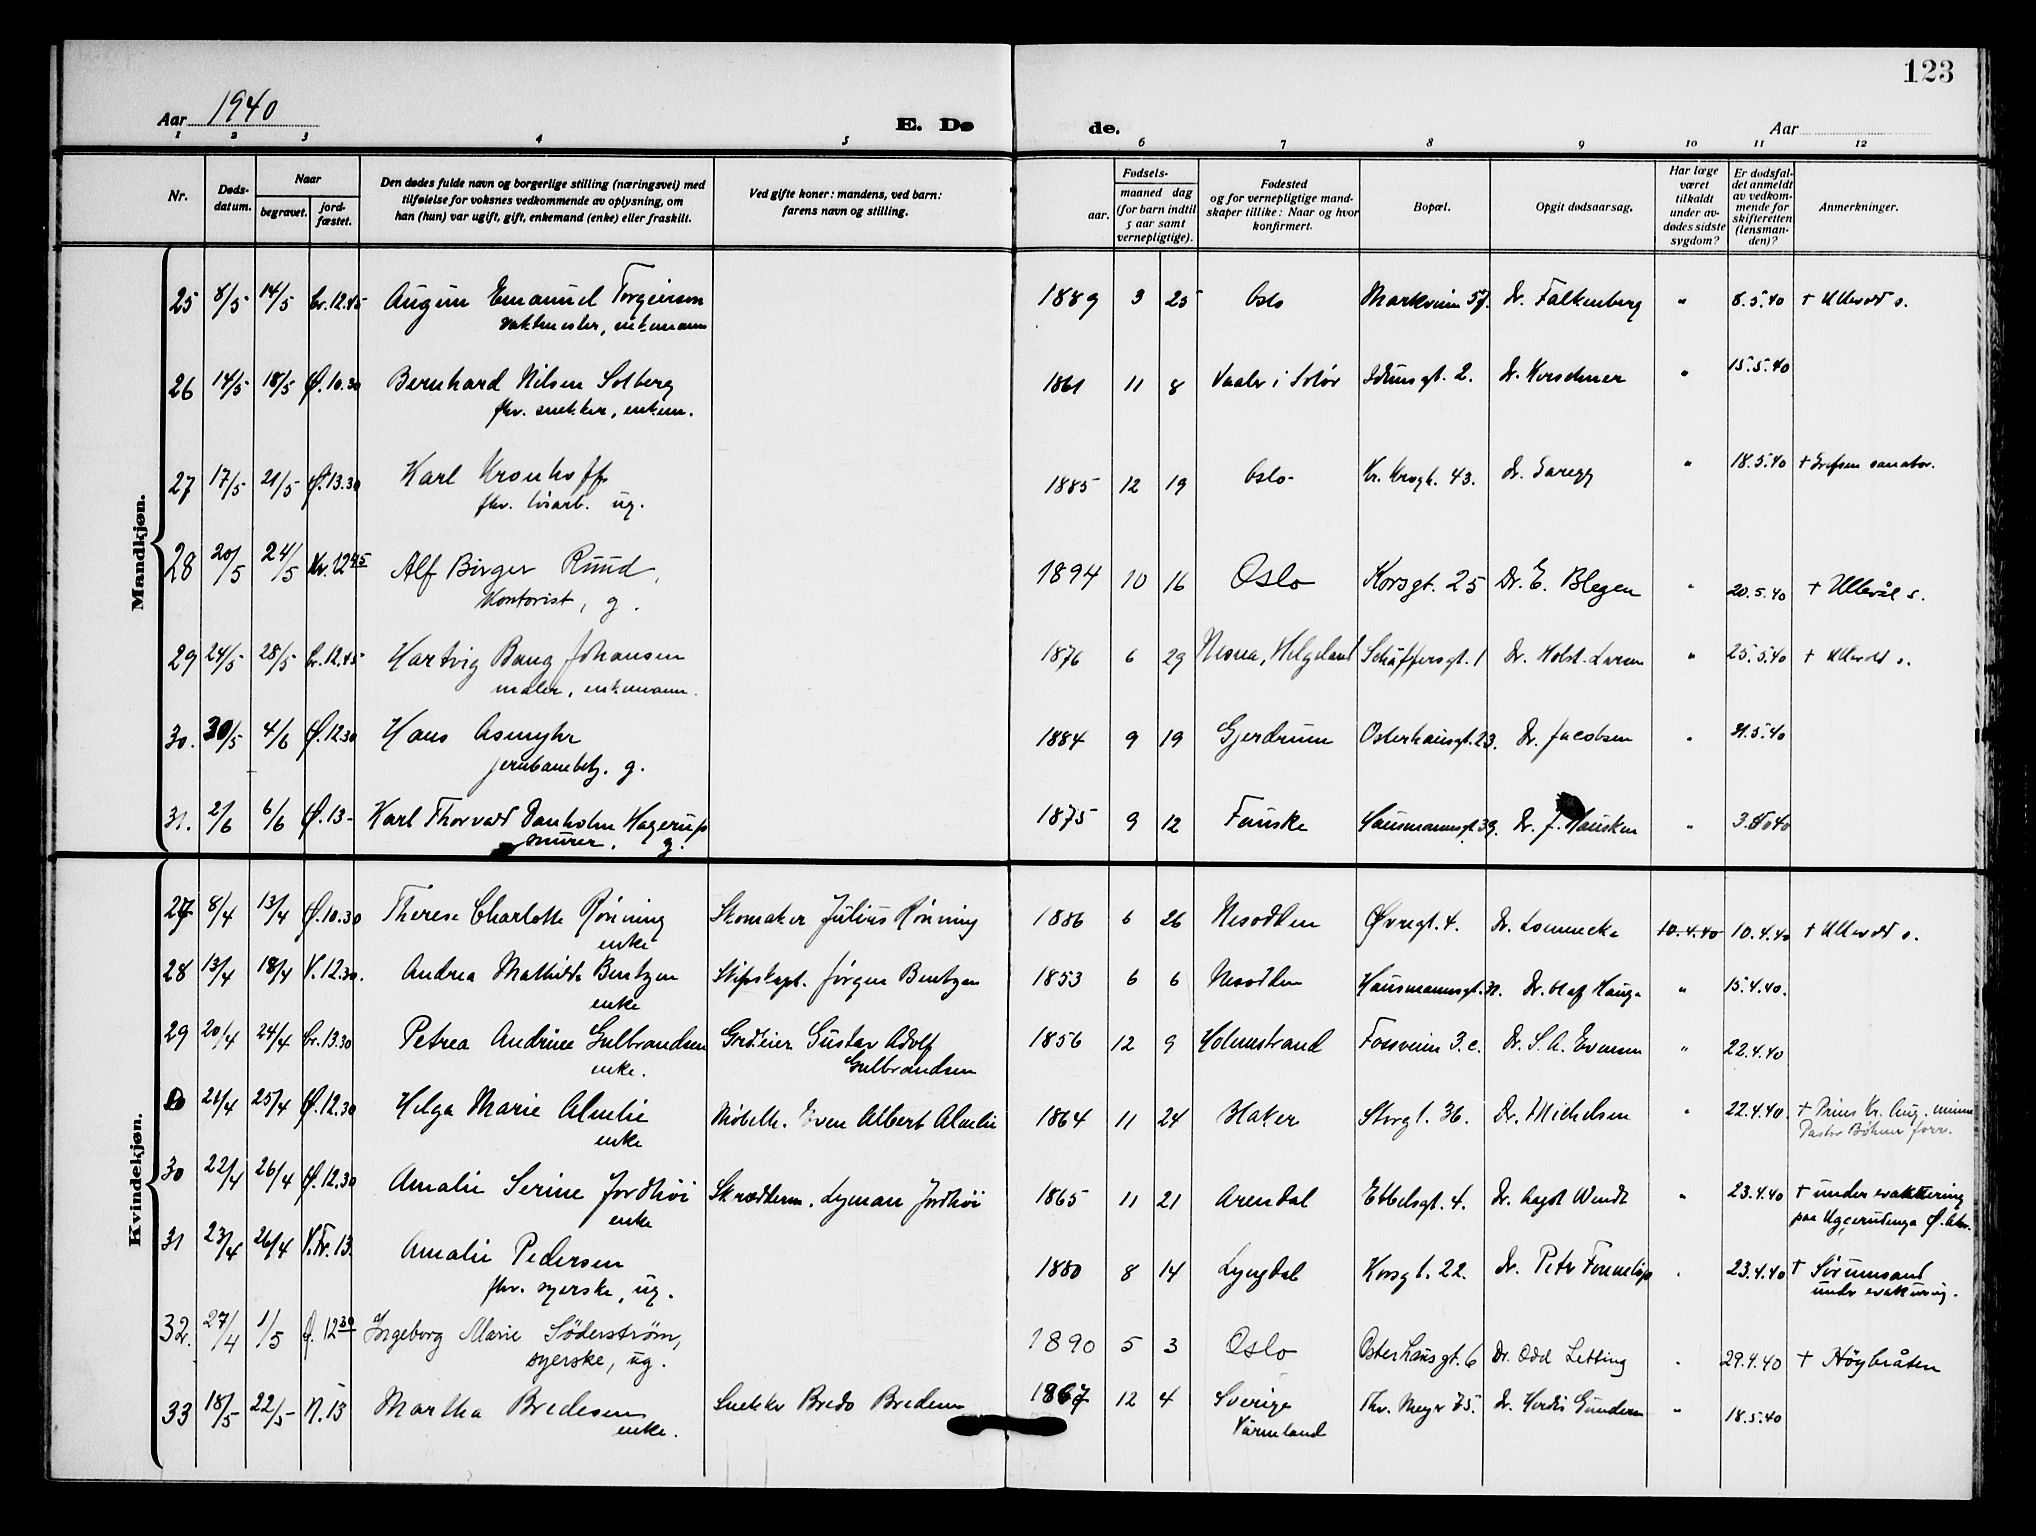 123
Aar 1940
E. Dø de.
Aar
1 2 3 4 5 6 7 8 9 10 11 12
Nr.
Døds-
datum.
Naar
begravet.
jord-
fæstet.
Den dødes fulde navn og borgerlige stilling (næringsvei) med
tilføielse for voksnes vedkommende av oplysning, om
han (hun) var ugift, gift, enkemand (enke) eller fraskilt.
Ved gifte koner: mandens, ved barn:
farens navn og stilling.
Fødsels-
aar.
maaned dag
(for barn indtil
5 aar samt
vernepligtige).
Fødested
og for vernepligtige mand-
skaper tillike: Naar og hvor
konfirmert.
Bopæl.
Opgit dødsaarsag.
Har læge
været
tilkaldt
under av-
dødes sidste
sygdom?
Er dødsfal-
det anmeldt
av vedkom-
mende for
skifteretten
(lensman-
den)?
Anmerkninger.
Mandkjøn.
25 8/5 14/5 Cr. 12.45 August Emanuel Torgersen 1889 3 25 Oslo Markveien 57. Dr. Falkenberg " 8.5.40 + Ullevål s.
vaktmester, enkemann
26 14/5 18/5 Ø. 10.30 Bernhard Nilsen Solberg 1861 11 8 Vaaler i Solør Idunsgt. 2. Dr. Kirschner " 15.5.40
fhv. snekker, enkem.
27 17/5 21/5 Ø. 13.30 Karl Kronhoff 1885 12 19 Oslo Kr. Kroghs. 43. Dr. Saregg " 18.5.40 + Grefsen sanator.
fhv. løsarb. ug.
28 20/5 24/5 Kr. 12 45 Alf Birger Ruud, 1894 10 16 Oslo Korsgt. 25 Dr. E. Blegen " 20.5.40 + Ullevål s.
Kontorist, g.
29 24/5 28/5 Cr. 12.45 Hartvig Bang Johansen 1876 6 29 Nesna, Helgeland Schäffersgt. 1 Dr. Holst-Larsen " 25.5.40 + Ullevål s.
maler, enkemann.
30. 30/5 4/6 Ø. 12.30 Hans Asmyhr 1884 9 19 Gjerdrum Osterhausgt. 23. Dr. Jacobsen " 31.5.40
jernbanebetj. g.
31. 2/6 6/6 Ø. 13- Karl Thorvald Danholm Hagerup 1875 9 12 Fauske Hausmannsgt. 39. Dr. J. Hausken " 3.6.40
murer, g.
Kvindekjøn.
27 8/4 13/4 Ø. 10.30 Therese Charlotte Rønning Skomaker Julius Rønning 1886 6 26 Nesodden Øvregt. 4. Dr. Lonnecke 10.4.40 10.4.40 + Ullevål s.
enke
28 13/4 18/4 V. 12.30. Andrea Mathilde Bentzen Skipskapt. Jørgen Bentzen 1853 6 6 Nesodden Hausmannsgt. Dr. Olaf Hauge " 15.4.40.
enke
29 20/4 24/4 Cr. 13.30 Petrea Andrine Gulbrandsen Grdeier Gustav Adolf 1856 12 9 Holmstrand Fossveien 3.c. Dr. S. A. Evensen " 22.4.40
enke. Gulbrandsen
21/4 25/4 Ø. 12.30 Helga Marie Almlie Møbelh. Even Albert Almlie 1864 11 24 Blaker Storgt. 36. Dr. Michelsen " 22.4.40. + Prins Kr. Aug. minne
enke Pastor Bøhmer forr.
30 22/4 26/4 Ø. 12.30 Amalie Serine Jordhøi Skrædderm. Lyman Jordhøi 1865 11 21 Arendal Ebbelsgt. 4. Dr. Aagot Wendt " 23.4.40 + under evakuering
enke paa Uggerudenga Ø.
31 23/4 26/4 V.Fr. 13. Amalie Pedersen 1880 8 14 Lyngdal Korsgt. 22. Dr. Peter Fonnelop " 23.4.40 + Sørumsand
fhv. syerske, ug. under evakuering.
32. 27/4 1/5 Ø. 12 30 Ingeborg Marie Söderström, 1890 5 3 Oslo Osterhausgt. 6 Dr. Odd Letting " 29.4.40 + Høybråten
syerske, ug.
33 18/5 22/5 N. 13 Martha Bredesen Snekker Bredo Bredesen 1867 12 4 Sverige Thv. Meyer 75. Dr. Herdis Gundersen " 18.5.40
enke. Värmland